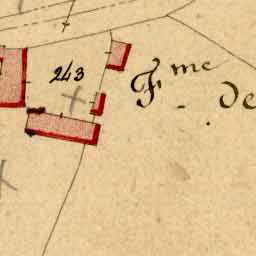 243
Fme
de